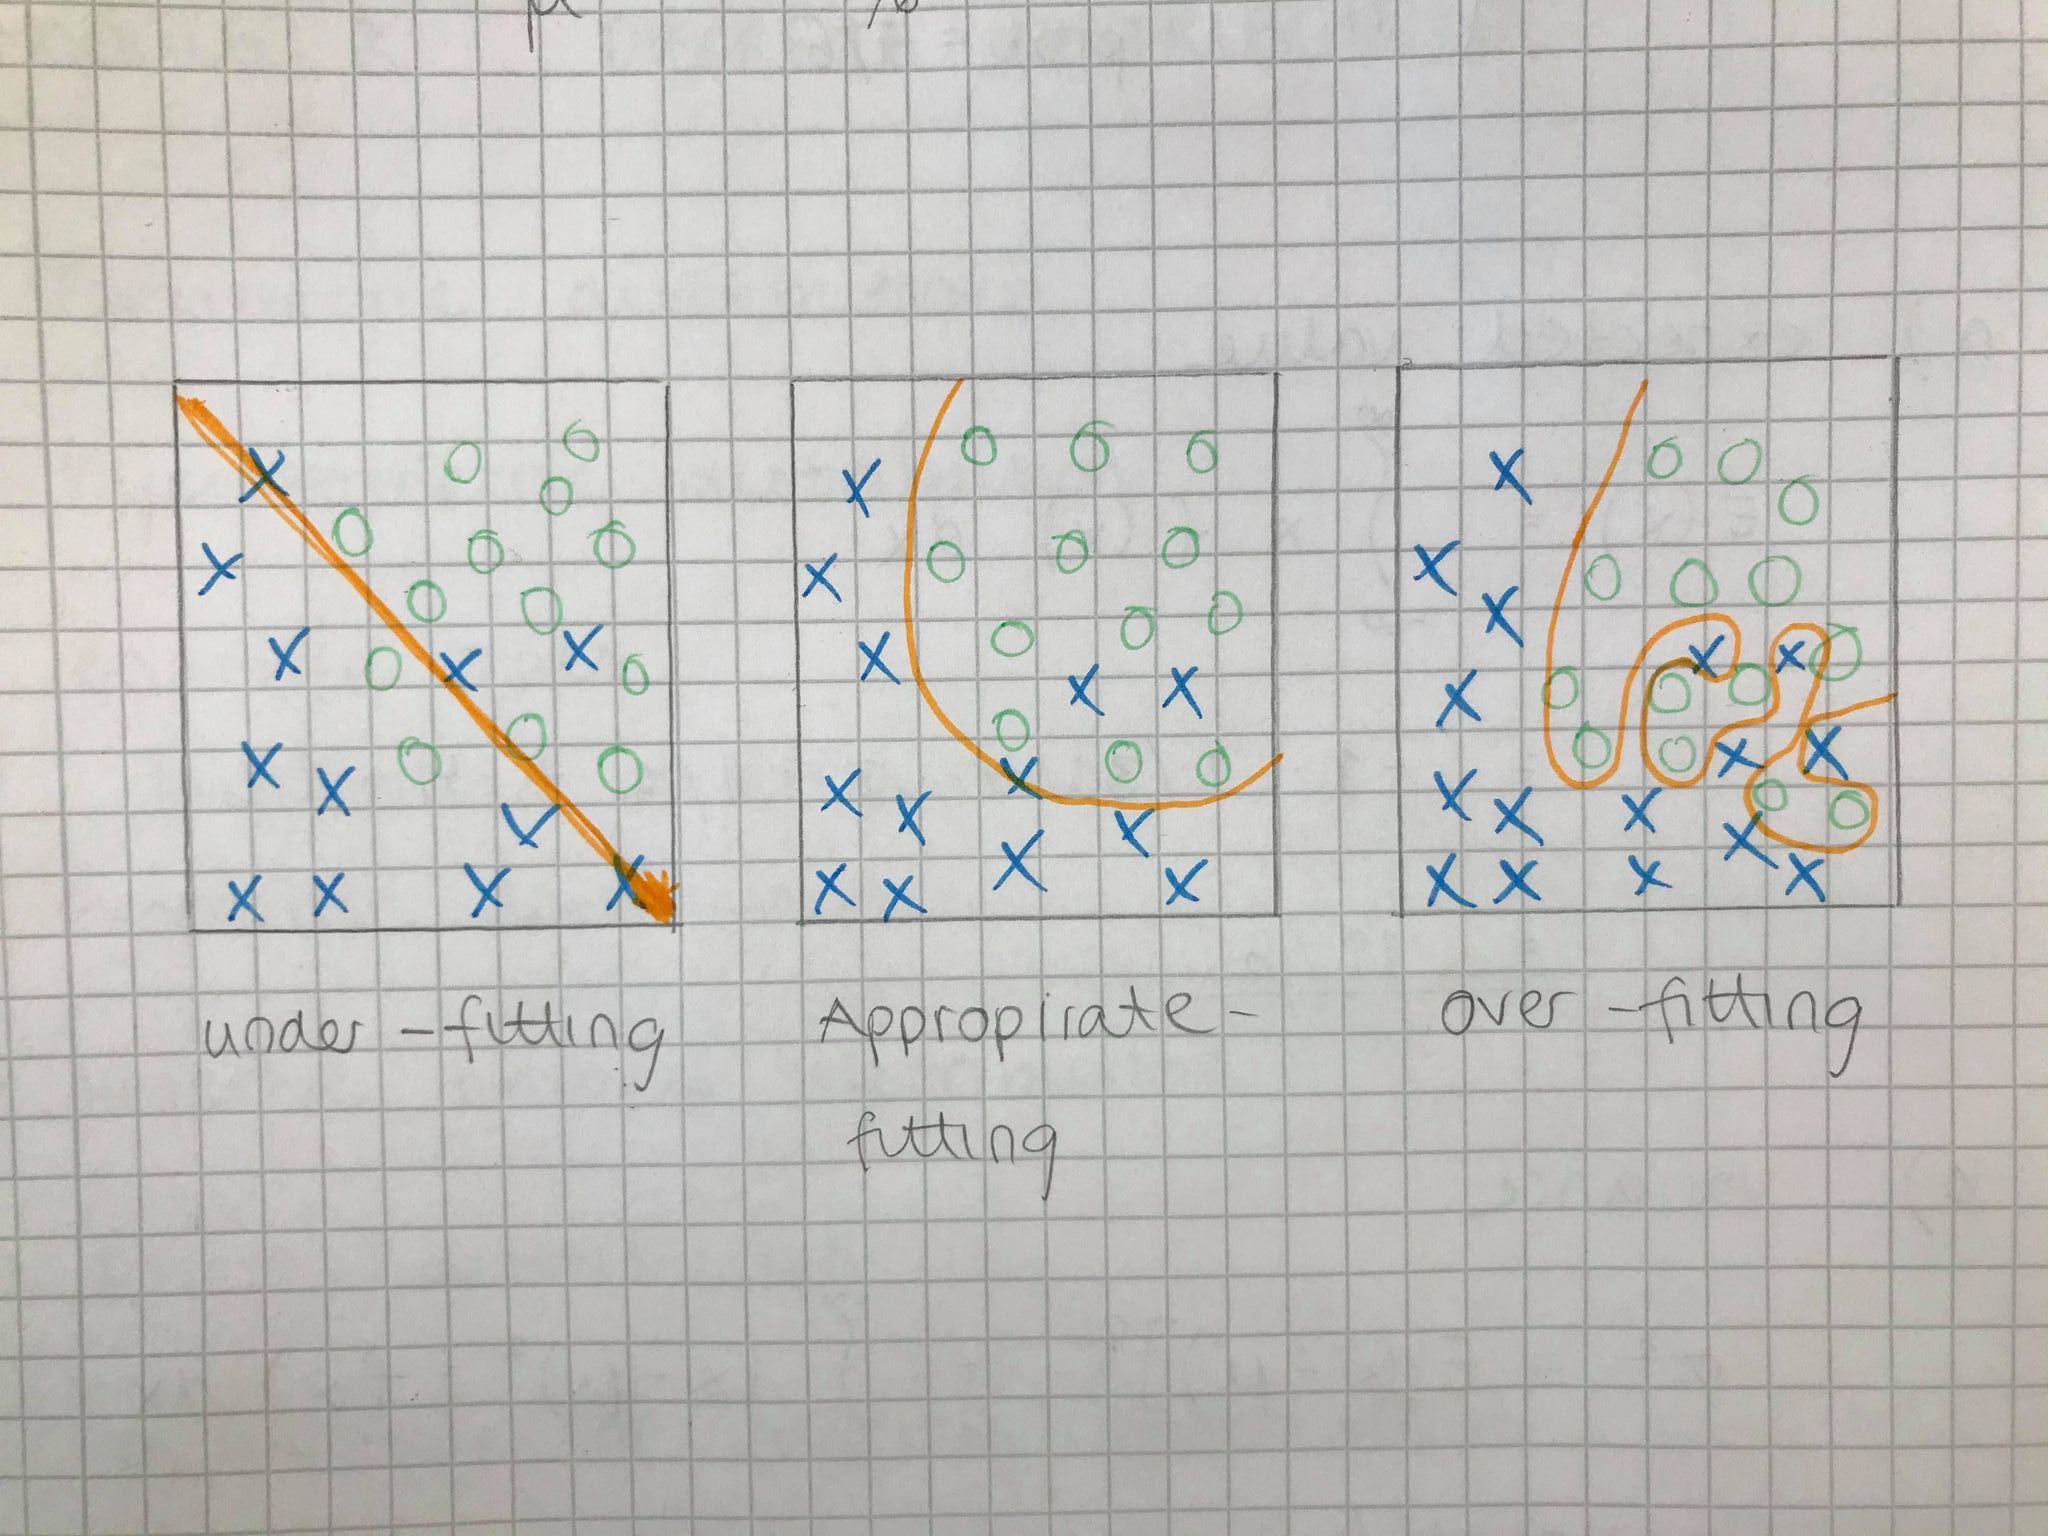 under-fitting
Appropirate-
fitting
over-fitting